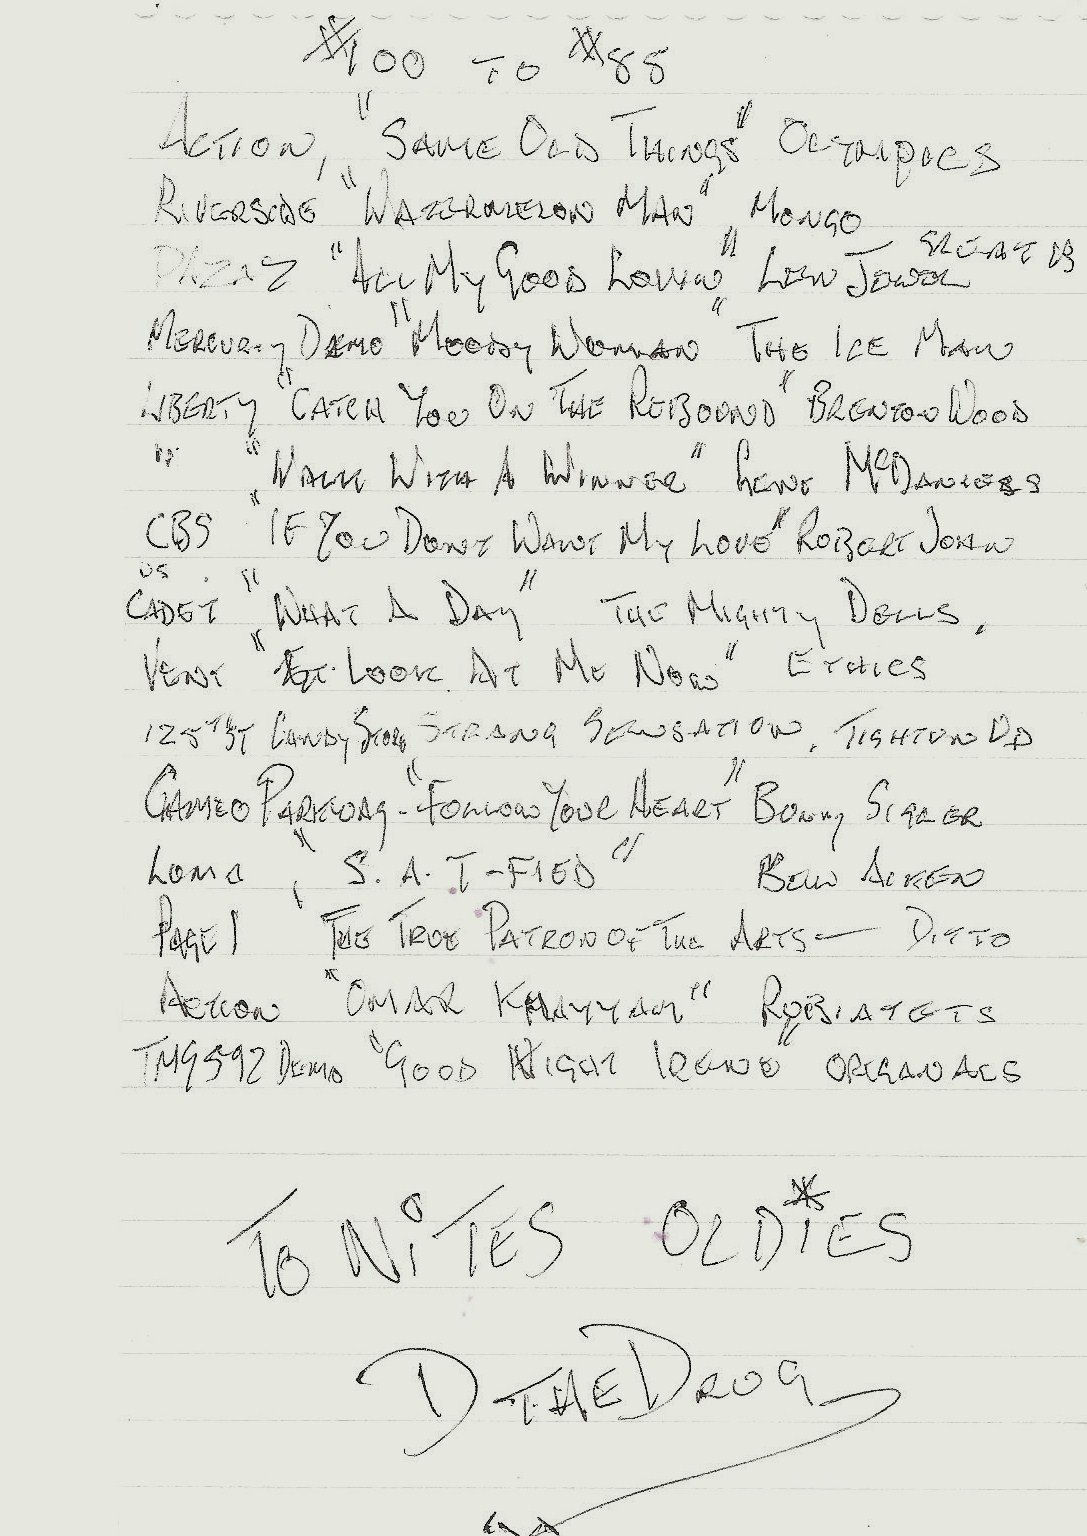 #100 TO #88
ACTION, "SAME OLD THINGS" OLYMPICS
RIVERSIDE "WATERMELON MAN" MONGO
"ALL MY GOOD LOVIN" LEN JEWEL GREAT IS
MERCURY DEMO "MOODY WOMAN" THE ICE MAN
LIBERTY "CATCH YOU ON THE REBOUND" BRENTON WOOD
" "WALK WITH A WINNER" GENE McDANIELS
CBS "IF YOU DONT WANT MY LOVE" ROBERT JOHN
US
CADET "WHAT A DAY" THE MIGHTY DELLS,
VENT "LOOK AT ME NOW" ETHICS
125TH ST CANDY STORE STRANG SENSATION, TIGHTON UP
CAMEO PARKWAY - "FOLLOW YOUR HEART" BUNNY SIGLER
LOMA, "S.A.T-FIED" BEN AIKEN
PAGE 1 "THE TRUE PATRON OF THE ARTS — DITTO
ACTION "OMAR KHAYYAM" ROBIATETS
TMG592 DEMO "GOOD NIGHT IRENE" ORIGANALS
TO NITES OLDIES
D THE DROG